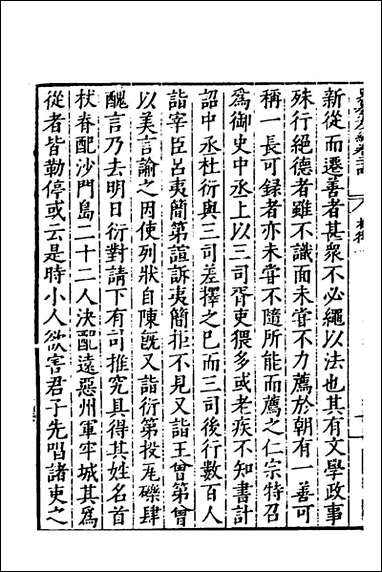 新從而遷善者甚衆不必繩以法也其有文學政事
殊行絕德者雖不識面未甞不力薦於朝有一善可
稱一長可録者亦未甞不隨所能而薦之仁宗特召
為御史中丞上以三司胥吏猥多或老疾不知書計
詔中丞杜衍與三司差擇之已而三司後行數百人
詣宰臣呂夷簡第諠訴夷簡拒不見又詣王曾第曾
以美言諭之因使列狀自陳旣又詣衍第投瓦礫肆
醜言乃去明日衍對請下有司推究具得其姓名首
杖脊配沙門島二十二人決配遠惡州軍牢城其為
從者皆勒停或云是時小人欲害君子先唱諸吏之